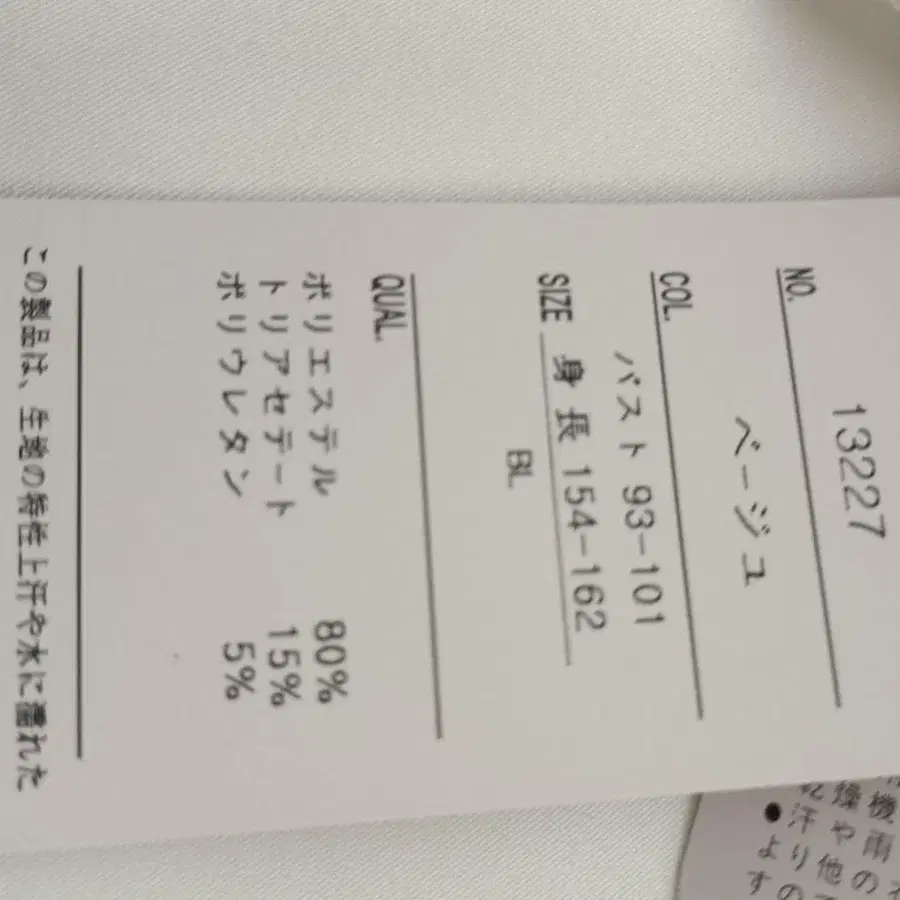 NO. 13227
COL. ベージュ
バスト 93-101
SIZE 身長 154-162
BL
QUAL.
ポリエステル 80%
トリアセテート 15%
ポリウレタン 5%
この製品は、生地の特性上汗や水に濡れた
機雨の
燥や他
汗りの
●よす